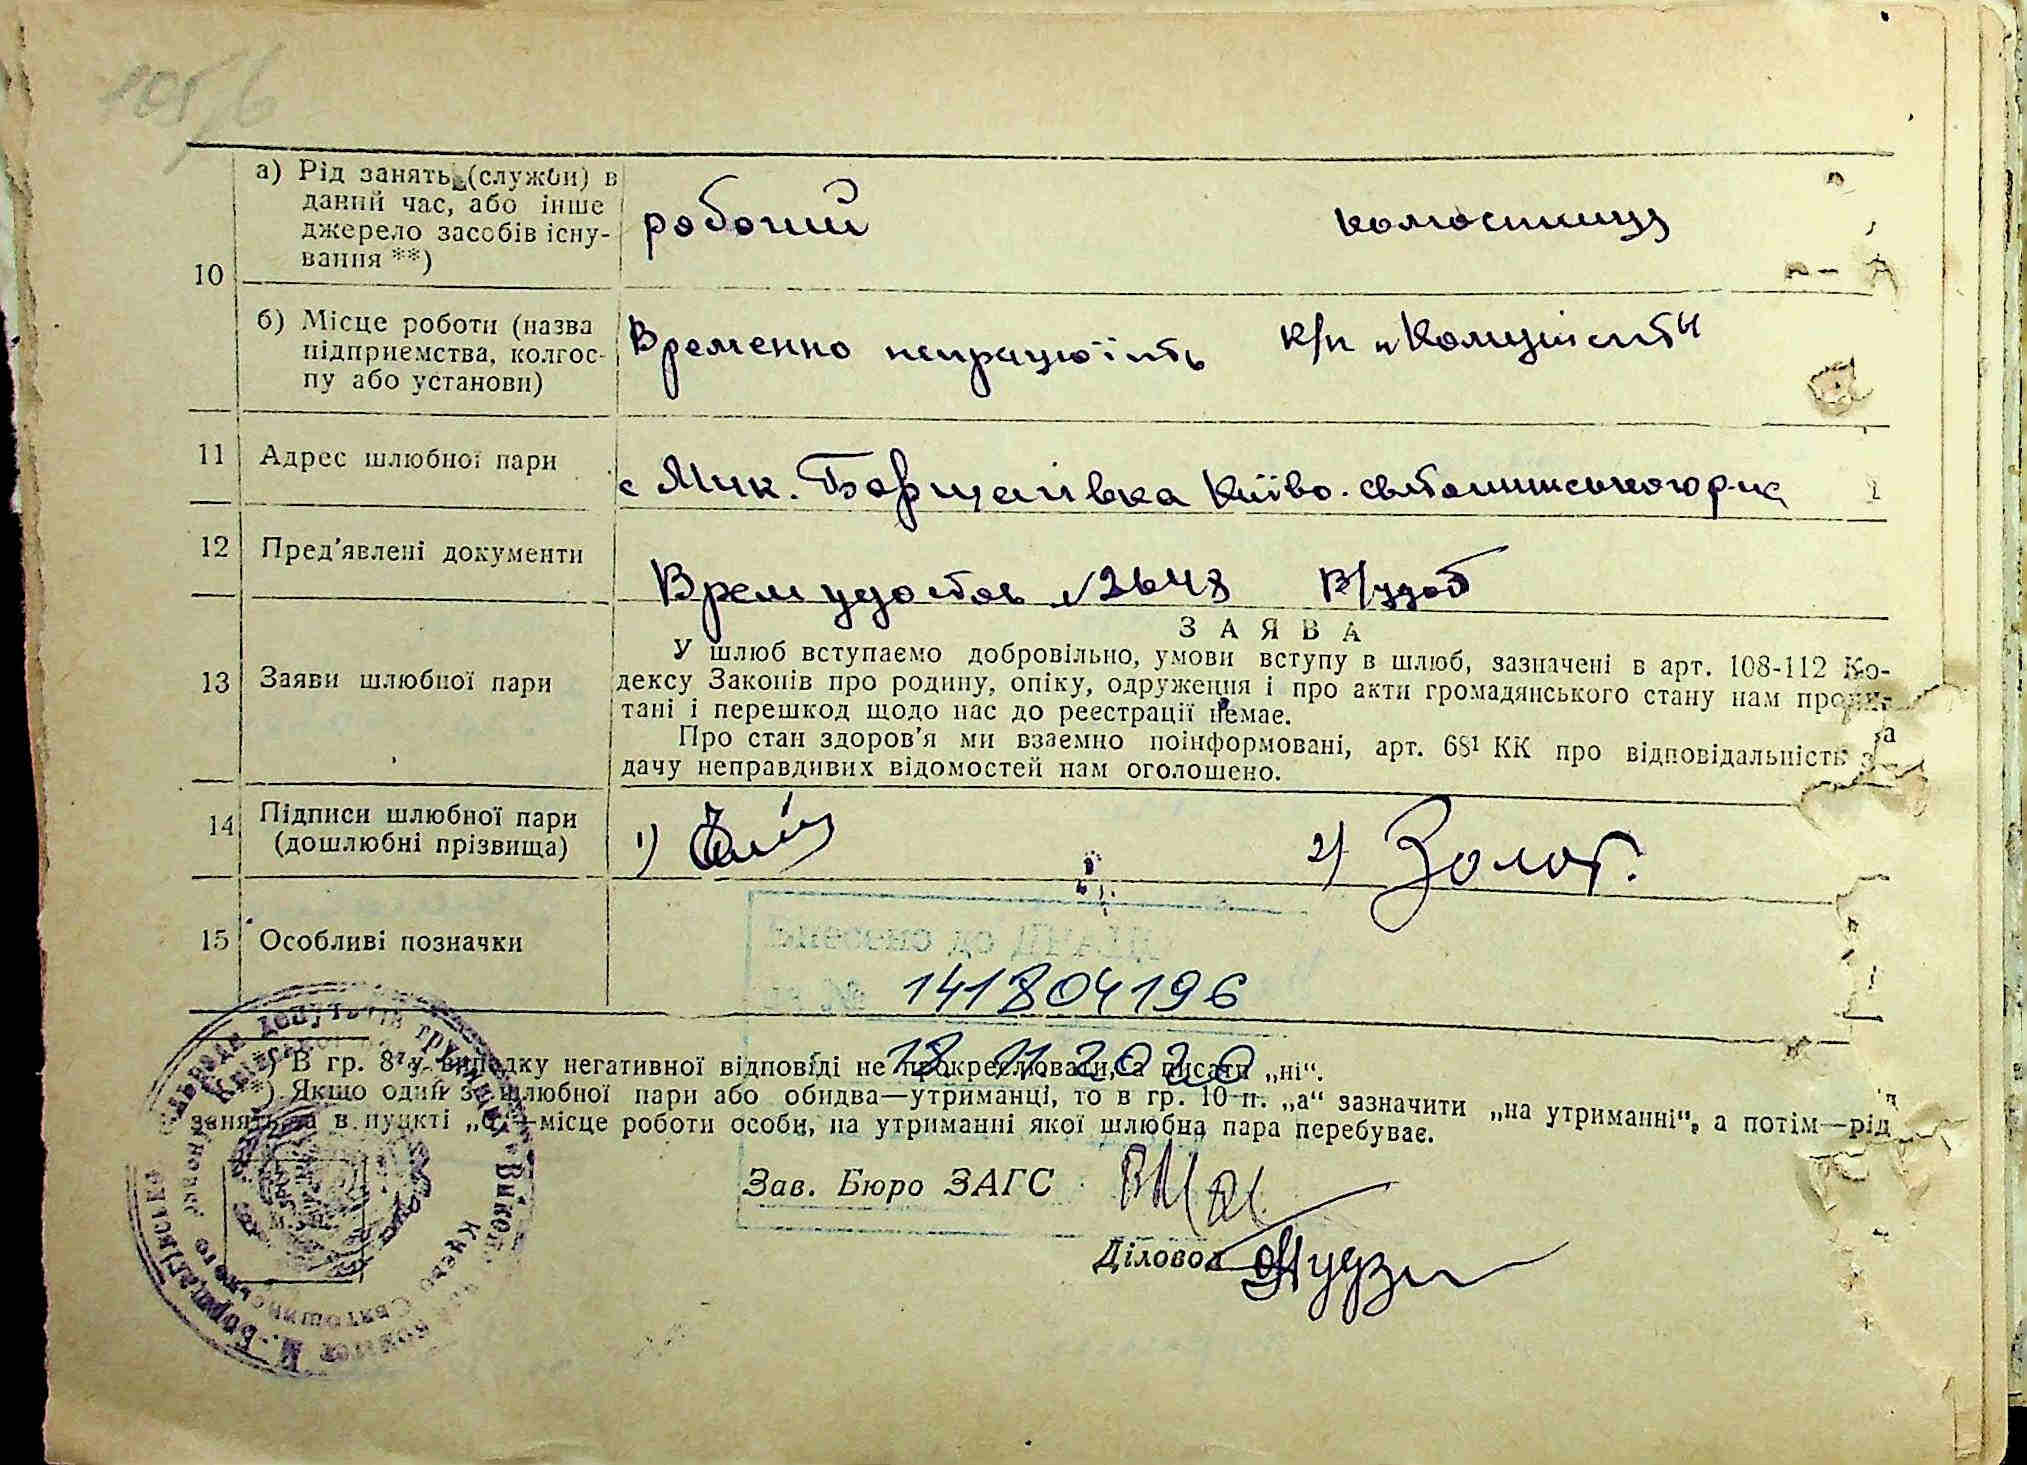 105/6
а) Рід занять (служби) в
даний час, або інше
джерело засобів існу-
вання **)
робочий
колгоспниця
10
б) Місце роботи (назва
підприємства, колгос-
пу або установи)
Временно непрацюїть
к/п „Комуніст"
11 Адрес шлюбної пари
с Мик. Борщагівка Київо. святошинського р-на
12 Пред'явлені документи
Врем удостов №2648 В/удоб
13 Заяви шлюбної пари
ЗАЯВА
У шлюб вступаємо добровільно, умови вступу в шлюб, зазначені в арт. 108-112 Ко-
дексу Законів про родину, опіку, одруження і про акти громадянського стану нам прочи-
тані і перешкод щодо нас до реєстрації немає.
Про стан здоров'я ми взаємно поінформовані, арт. 68¹ КК про відповідальність за
дачу неправдивих відомостей нам оголошено.
14 Підписи шлюбної пари
(дошлюбні прізвища)
1)
2) Золот.
15 Особливі позначки
141804196
18 11 2020
*) В гр. 8 у випадку негативної відповіді не прокреслювати, а писати „ні“.
**) Якщо один з шлюбної пари або обидва—утриманці, то в гр. 10 п. „а“ зазначити „на утриманні“, а потім—рід
занять, а в пункті „б“—місце роботи особи, на утриманні якої шлюбна пара перебуває.
Зав. Бюро ЗАГС
Діловод
М.-Борщагівської сільради депутатів трудящих Викон. комітет
Києво Святошинського району Київської
М. П.